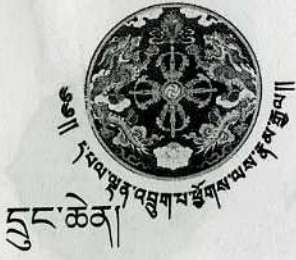 ༄༅།། དཔལ་ལྡན་འབྲུག་པ་ཕྱོགས་ལས་རྣམ་རྒྱལ།།
དྲུང་ཆེན།